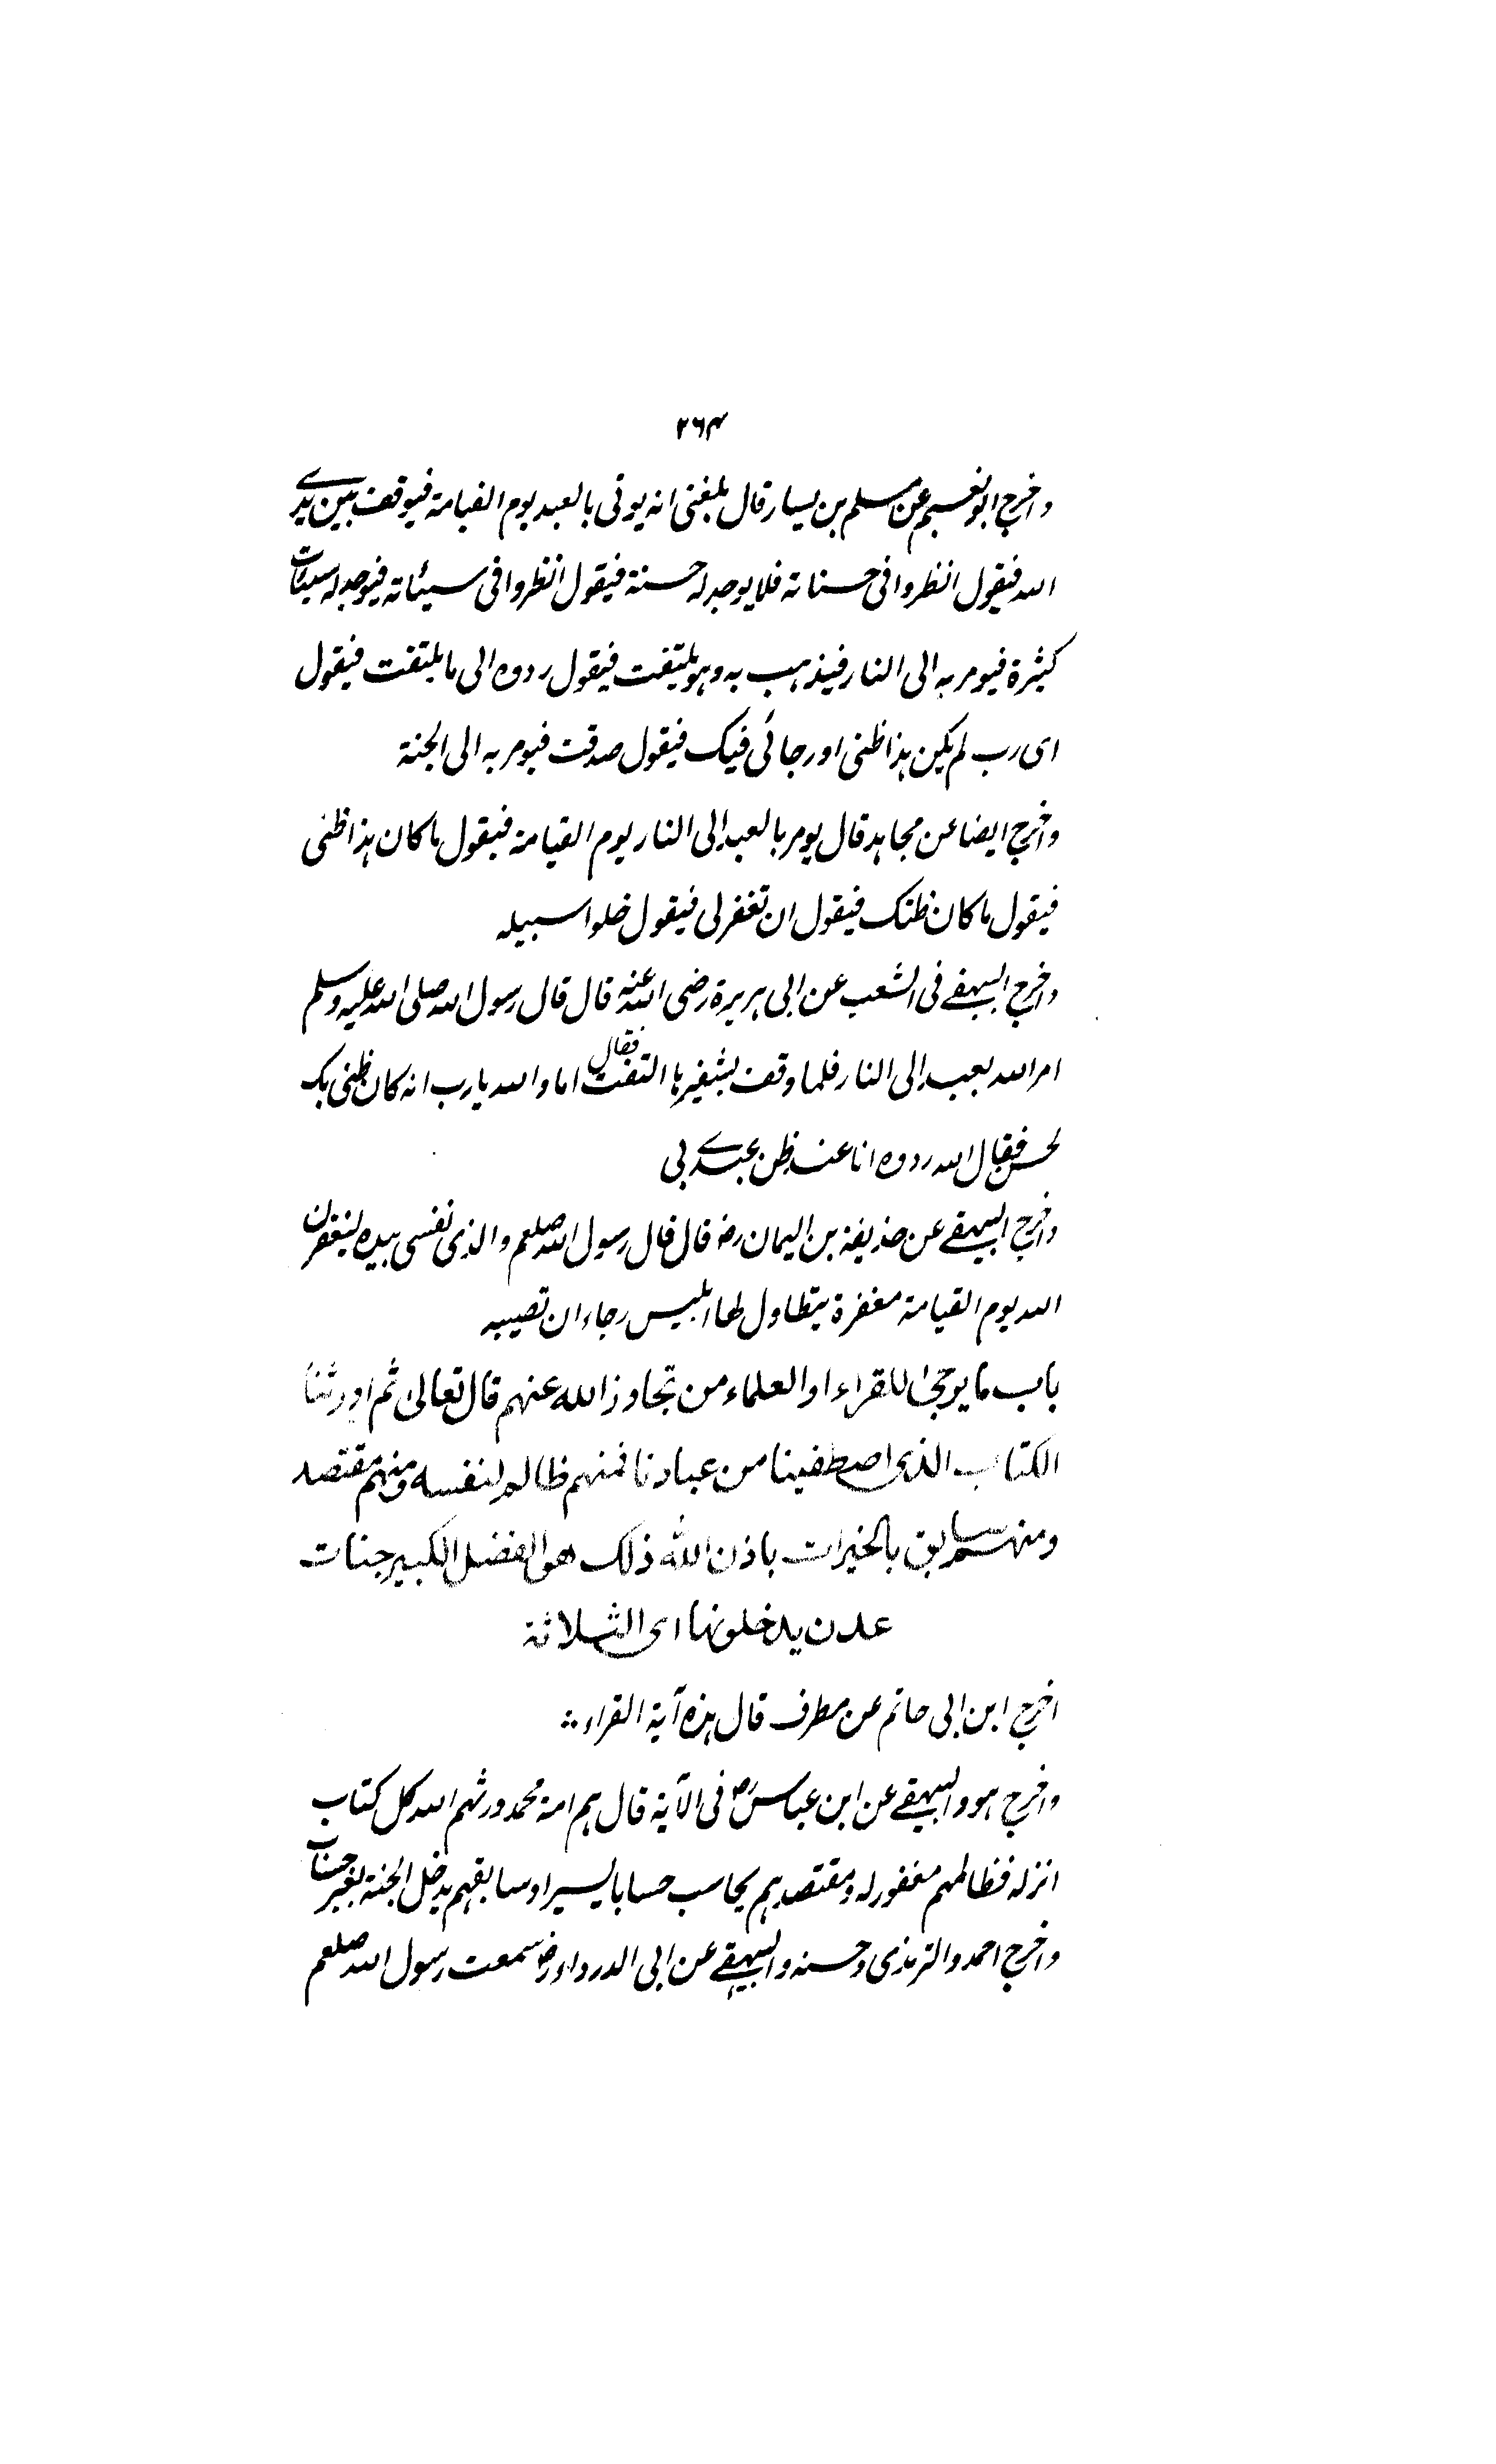 ۲۶۴
واخرج ابو نعيم عن مسلم بن يسار قال بلغنى انه يوتى بالعبد يوم القيامة فيوقف بين يدى
الله فيقول انظروا فى حسناته فلا يوجد له حسنة فيقول انظروا فى سيئاته فيوجد له سيئات
كثيرة فيومر به الى النار فيذهب به وهو يلتفت فيقول ردوه الى ما يلتفت فيقول
اى رب لم يكن هذا ظنى او رجائى فيك فيقول صدقت فيومر به الى الجنة
واخرج ايضا عن مجاهد قال يومر بالعبد الى النار يوم القيامة فيقول ما كان هذا ظنى
فيقول ما كان ظنك فيقول ان تغفر لى فيقول خلوا سبيله
واخرج البيهقى فى الشعب عن ابى هريرة رضى الله عنه قال قال رسول الله صلى الله عليه وسلم
امر الله بعبد الى النار فلما وقف بشفيرها التفت فقال اما والله يا رب انه كان ظنى بك
لحسن فقال الله ردوه انا عند ظن عبدى بى
واخرج البيهقى عن حذيفة بن اليمان رضـ قال قال رسول الله صلعم والذى نفسى بيده ليغفرن
الله يوم القيامة مغفرة يتطاول لها ابليس رجاء ان تصيبه
باب ما يرجى للقراء او العلماء من تجاوز الله عنهم قال تعالى ثم اورثنا
الكتاب الذى اصطفينا من عبادنا فمنهم ظالم لنفسه ومنهم مقتصد
ومنهم سابق بالخيرات باذن الله ذلك هو الفضل الكبير جنات
عدن يدخلونها اى الثلاثة
اخرج ابن ابى حاتم عن مطرف قال هذه آية القراء
واخرج هو والبيهقى عن ابن عباس رضـ فى الآية قال هم امة محمد ورثهم الله كل كتاب
انزله فظالمهم مغفور له ومقتصدهم يحاسب حسابا يسيرا وسابقهم يدخل الجنة بغير حساب
واخرج احمد والترمذى وحسنه والبيهقى عن ابى الدرداء رضـ سمعت رسول الله صلعم